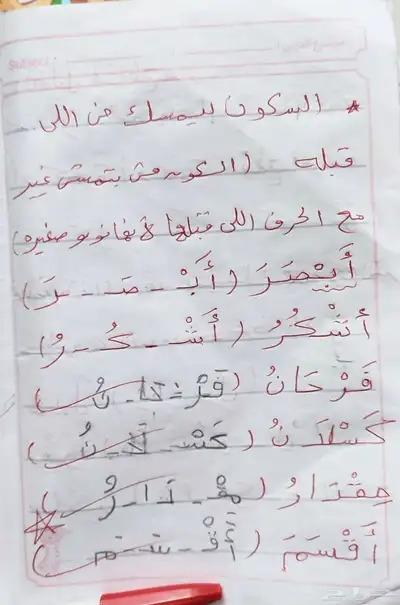 * السكون بيمسك في اللي
قبله (السكون مش بتمشي غير
مع الحرف اللي قبلها لأنها نونو صغيره)
أَبْصَرَ (أَبْ - صَ - رَ)
أَشْكُرُ (أَشْ - كُ - رُ)
فَرْحَانُ (فَرْ - حَا - نُ)
كَسْلَانُ (كَسْ - لَا - نُ)
مِقْدَارُ (مِقْ - دَا - رُ)
أَقْسَمَ (أَقْ - سَ - مَ)